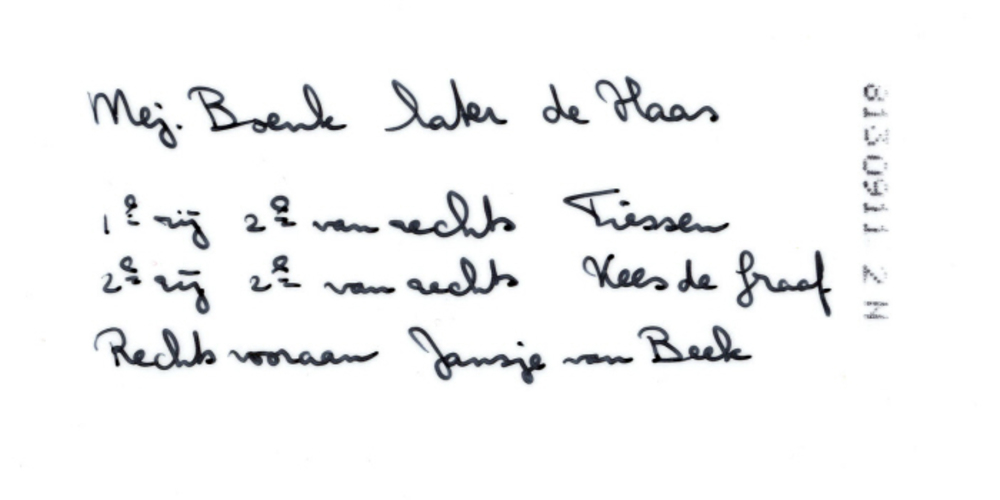 Mej. Bsenk later de Haas
1e rij 2e van rechts Tiessen
2e rij 2e van rechts Kees de Graaf
Rechts vooraan Jansje van Beek
8130911 2 N